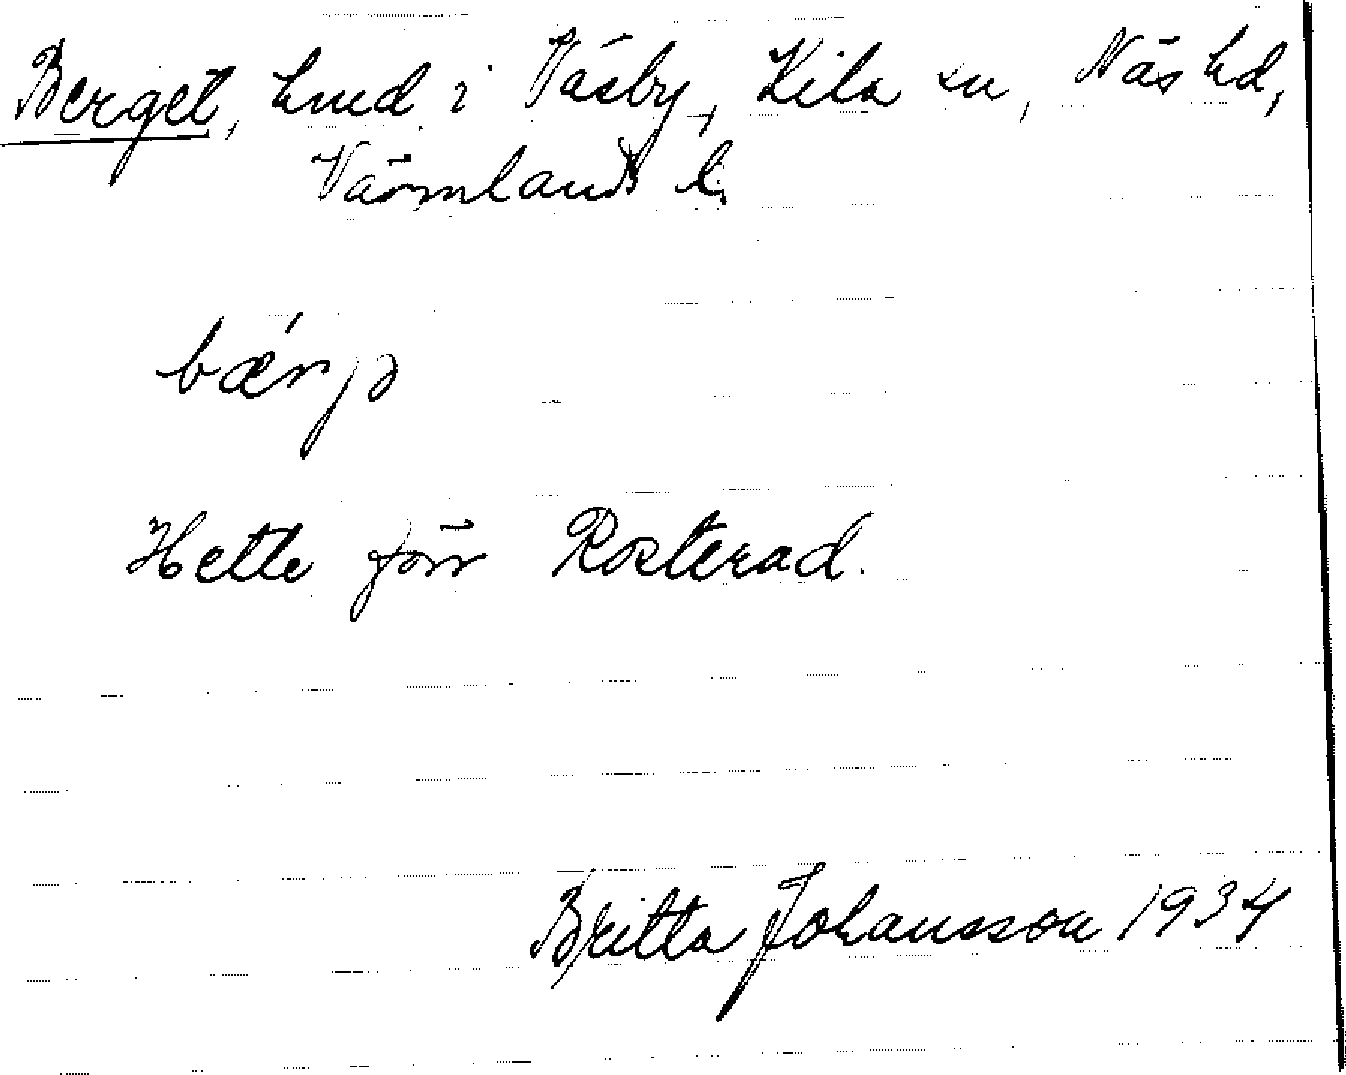 Berget, hmd i Väsby, Kila sn, Näs hd,
Värmlands l.
bær̀jə
Hette förr Rosterud.
Britta Johansson 1934